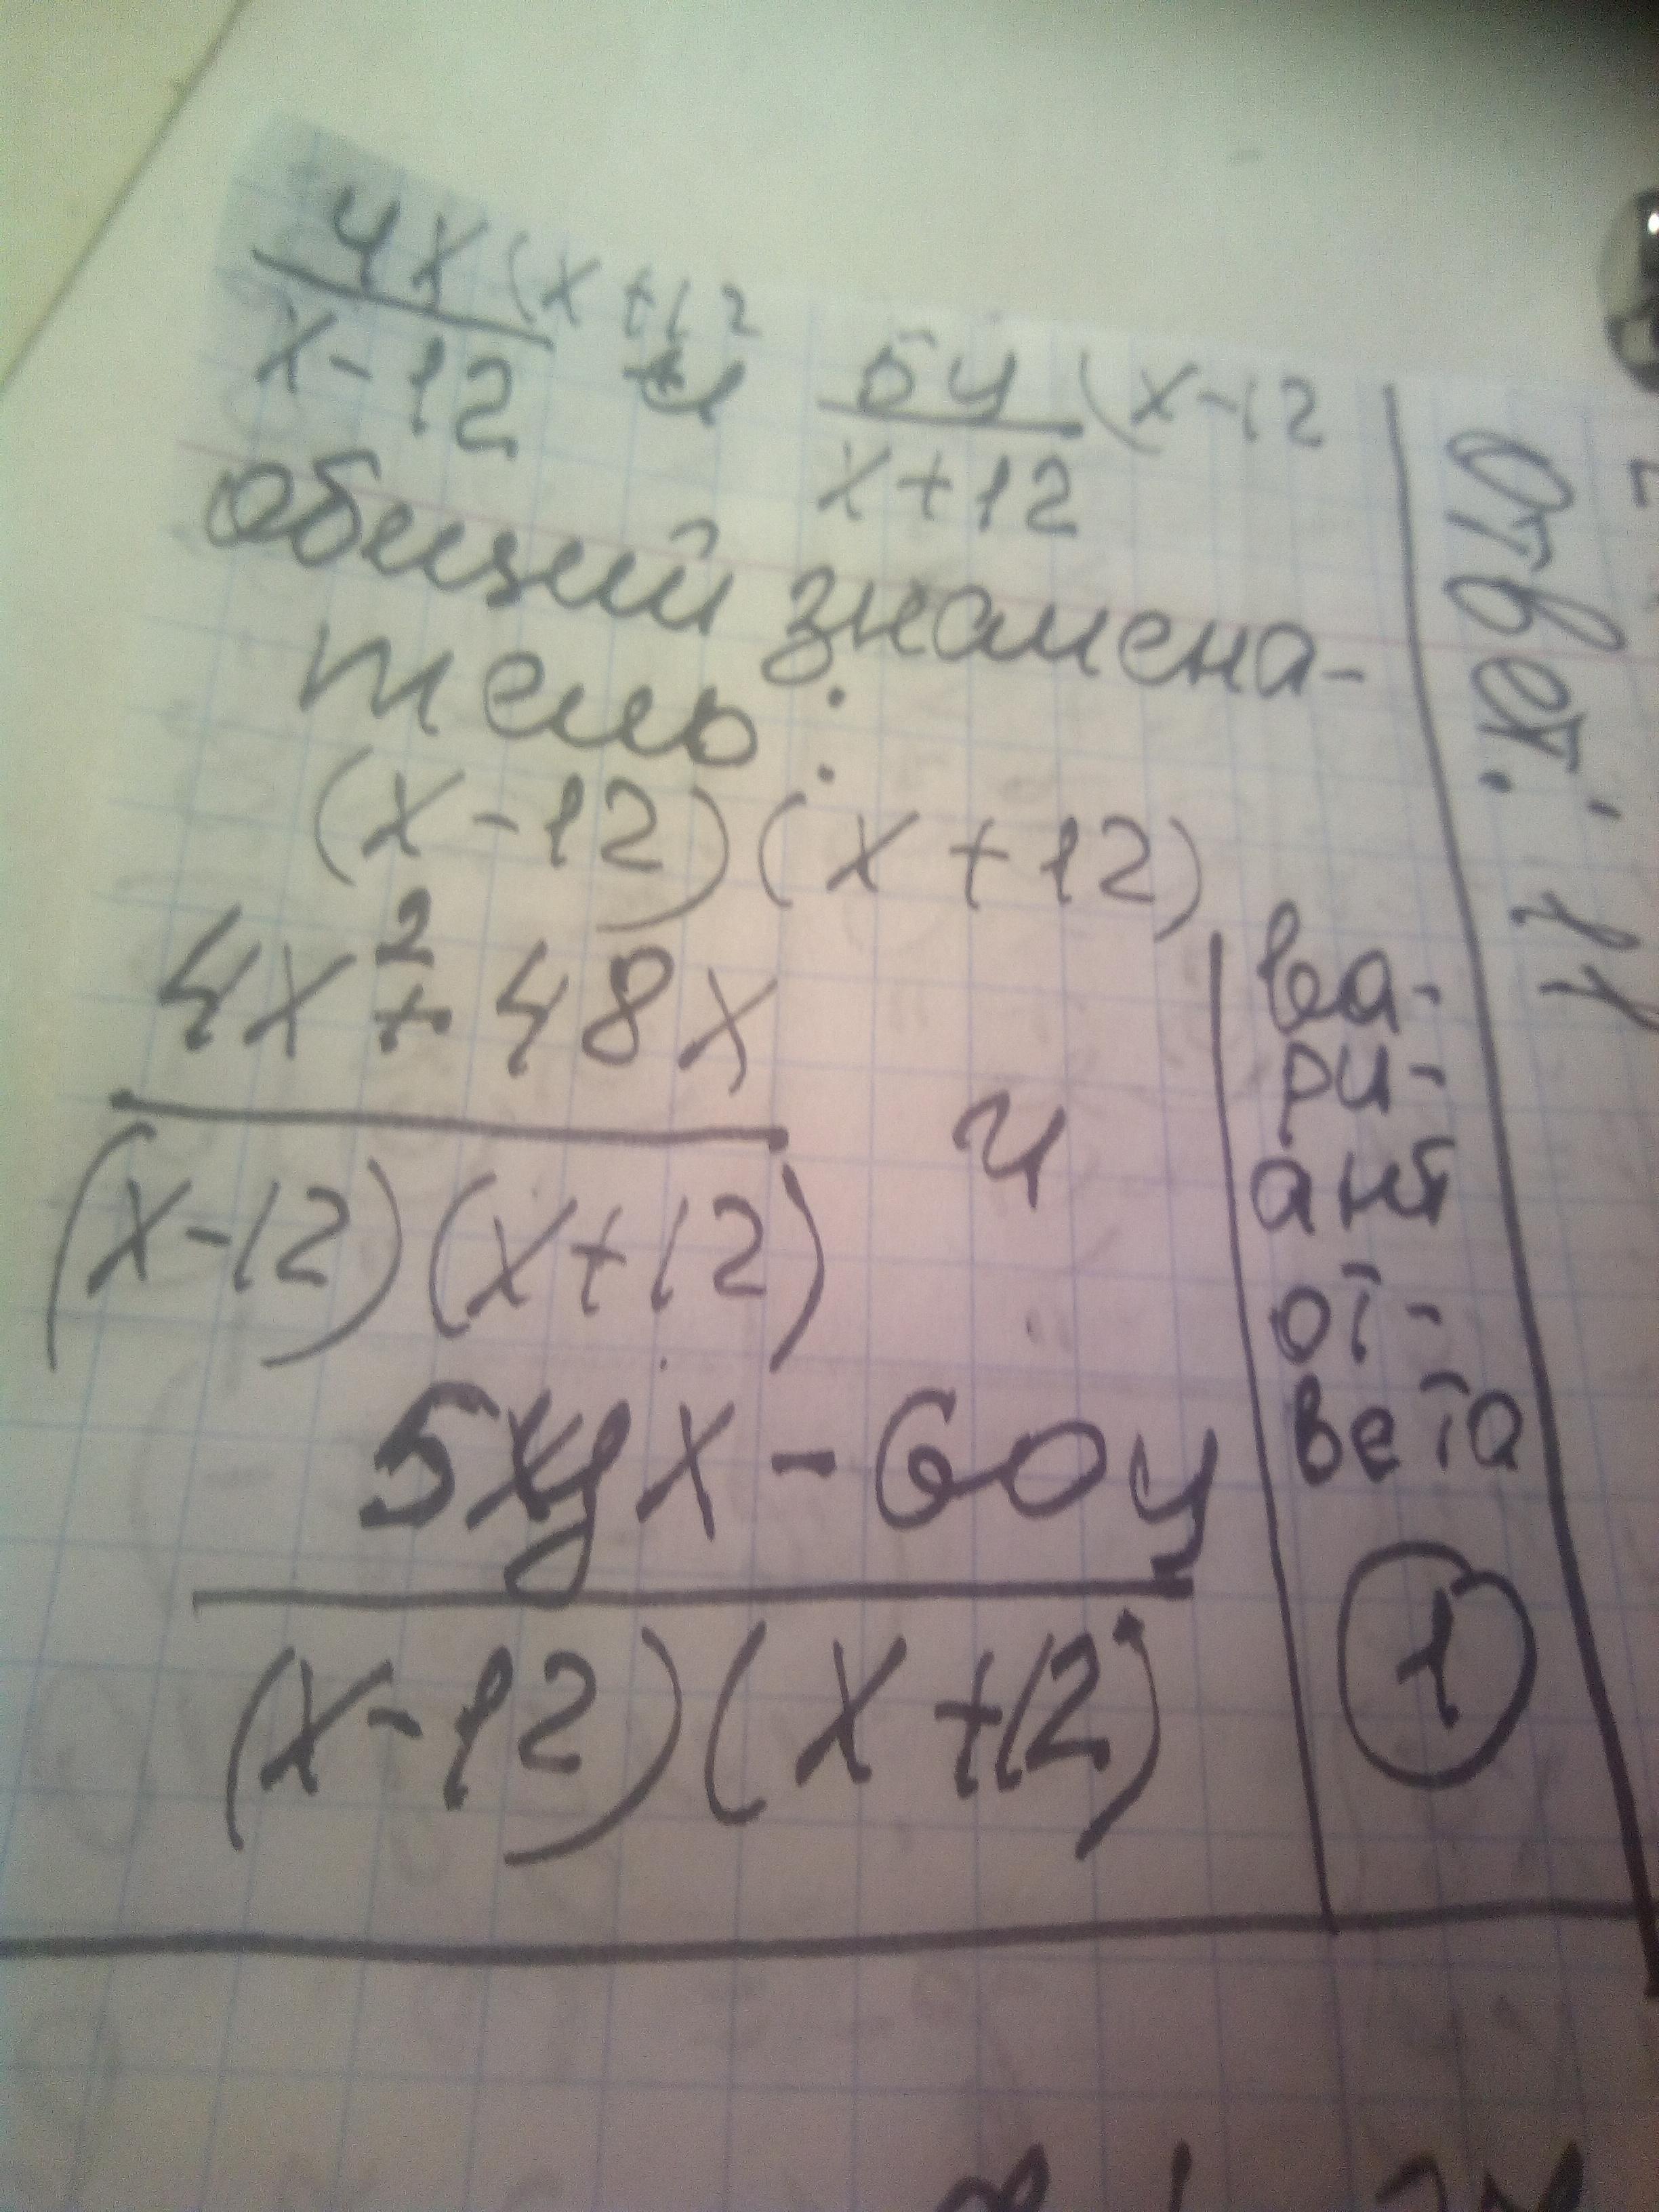 4x (x+12
x-12 и 5y (x-12
x+12
общий знамена-
тель:
(x-12)(x+12)
4x²+48x
(x-12)(x+12) и
5yx-60y
(x-12)(x+12)
ва-
ри-
ант
от-
вета
1
Ответ: 11